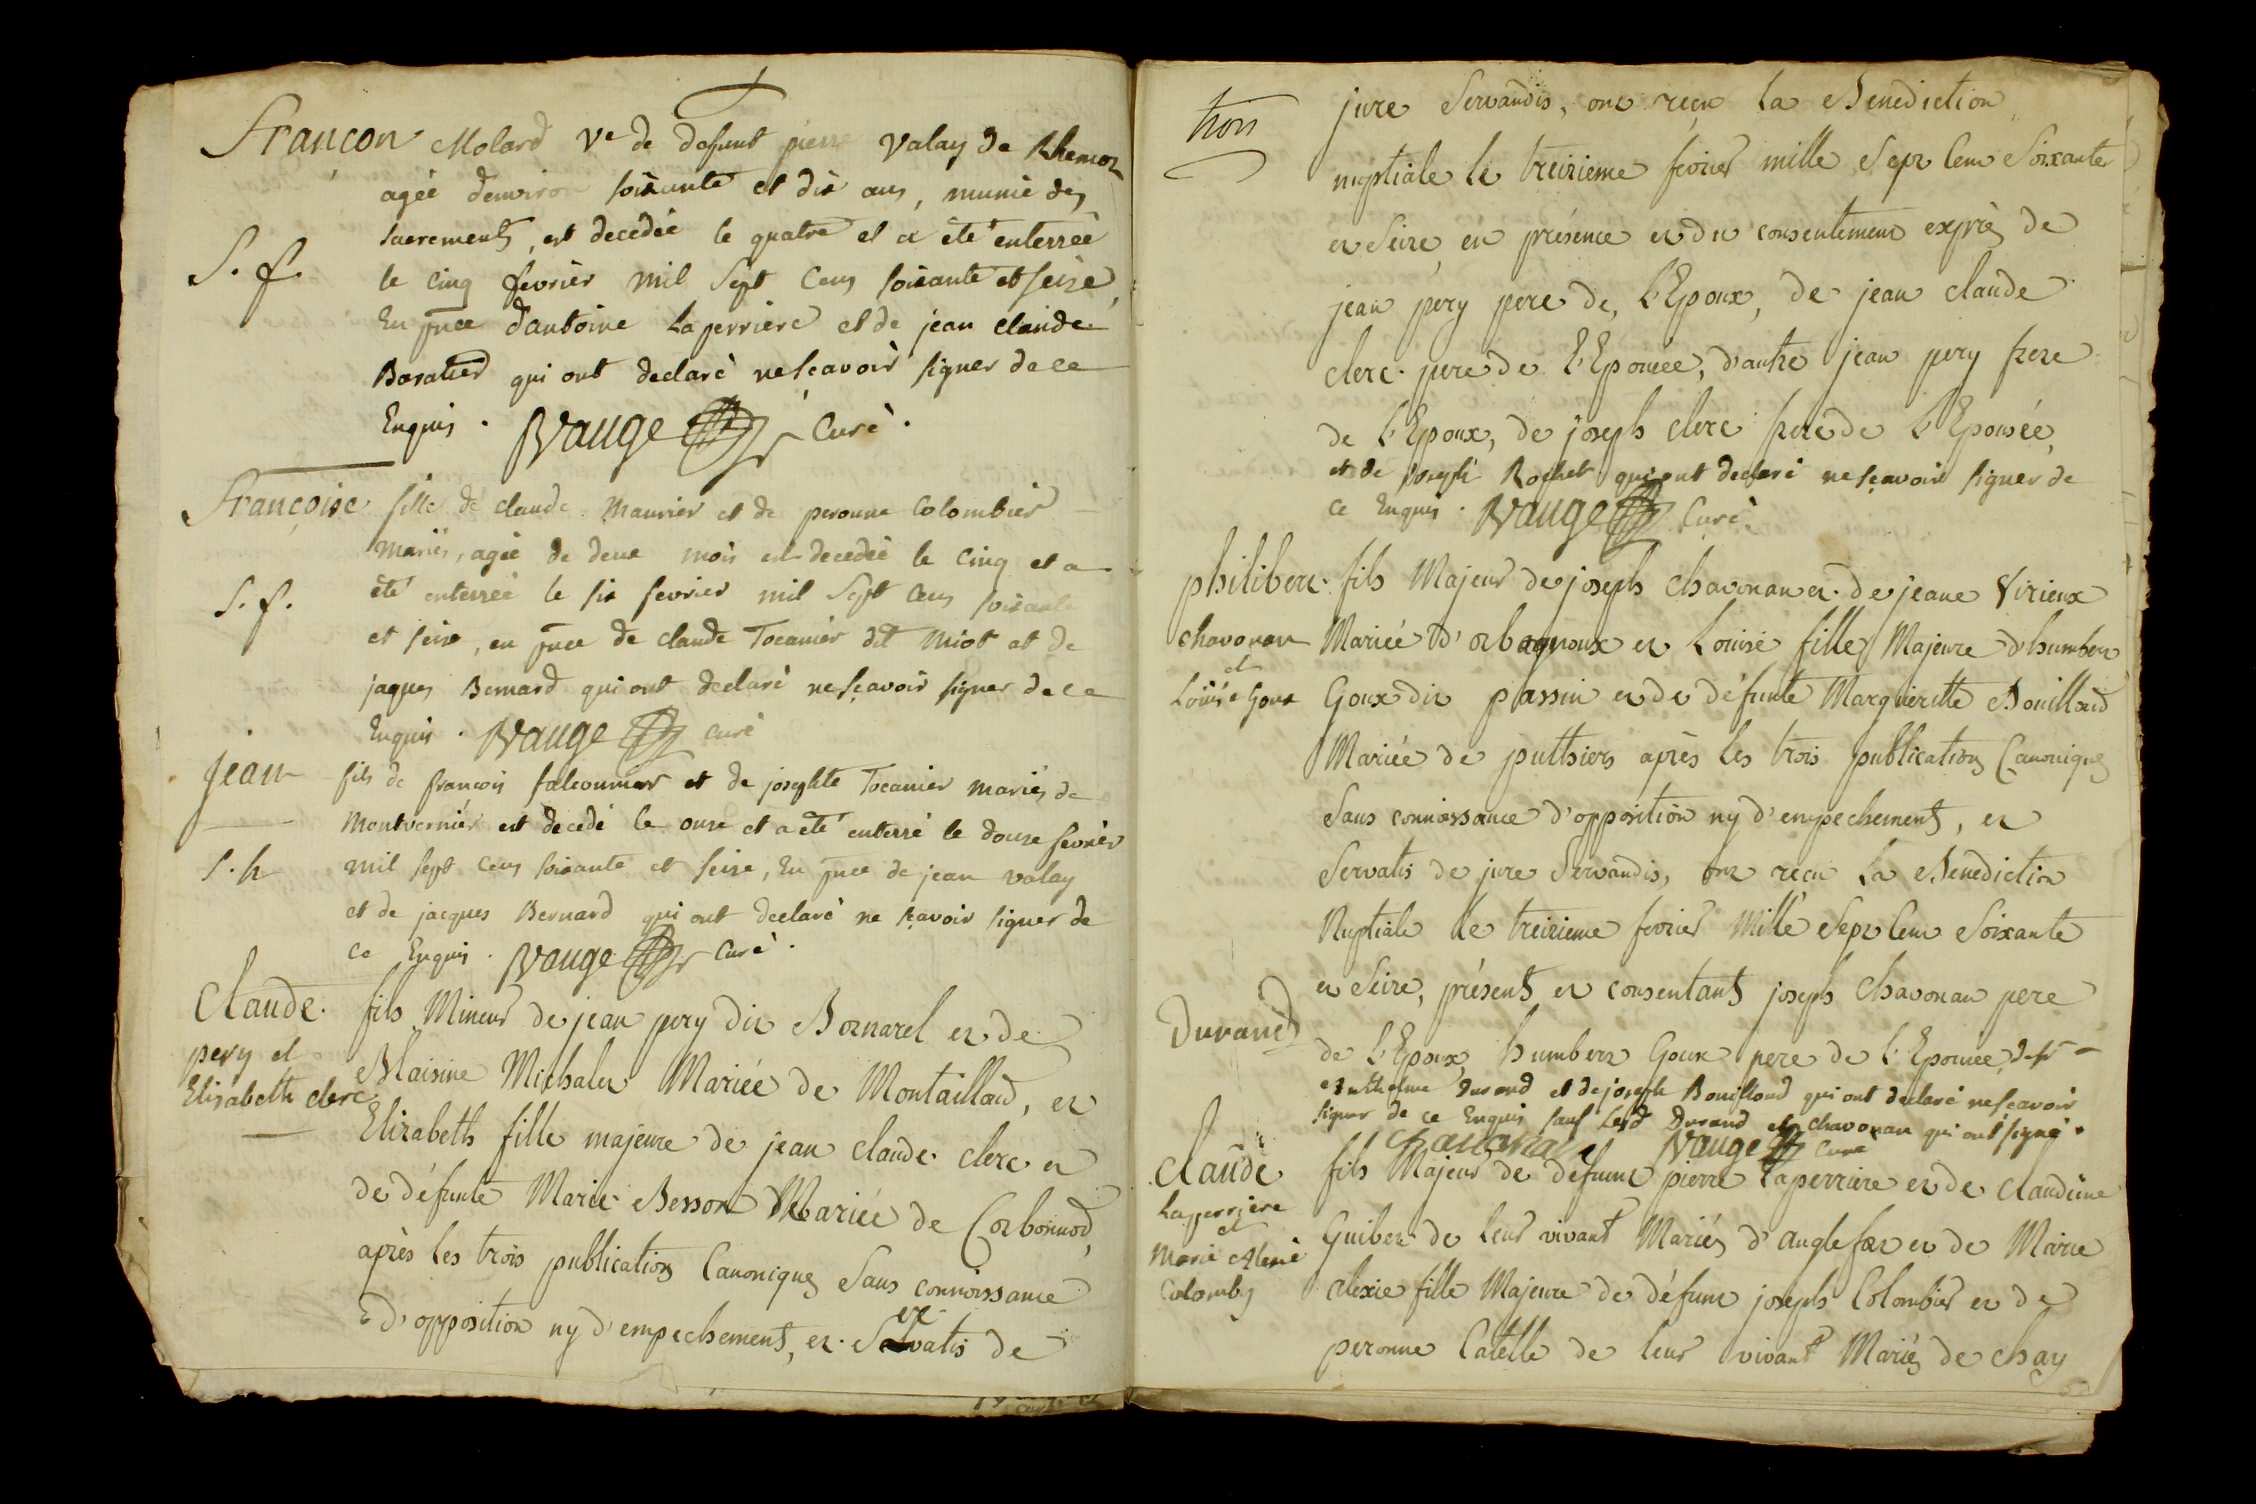 Françon Molard Ve de defunt pierre Valay de Rhemoz
agée d'environ soixante et dix ans, munie des
sacrements, est decedée le quatre et a été enterrée
S. f.
le cinq fevrier mil sept cens soixante et seize,
En pnce d'antoine Laperriere et de jean claude
Baratier qui ont declaré ne sçavoir signer de ce
Enquis. Vauge Curé.
Françoise fille de claude Maurier et de peronne Colombier
mariés, agée de deux mois est decedée le cinq et a
S. f.
été enterrée le six fevrier mil sept cens soixante
et seize, en pnce de claude Tocanier dit Miot et de
jaques Bernard qui ont declaré ne sçavoir signer de ce
Enquis. Vauge curé
jean fils de françois falconnier et de josephte Tocanier mariés de
Montvernier est decedé le onze et a été enterré le douze fevrier
S. h
mil sept cens soixante et seize, En pnce de jean valay
et de jacques Bernard qui ont declaré ne sçavoir signer de
ce Enquis. Vauge Curé.
Claude. fils Mineur de jean pery dit Bornarel et de
pery et
Blaisine Michalet Mariée de Montaillard, et
Elisabeth clerc
Elizabeth fille majeure de jean claude clerc et
de défunte Marie Besson Mariée de Corbonnod,
après les trois publications Canoniques Sans connoissance
d'opposition ny d'empechement, et Servatis de
er
trois
jure Servandis, ont reçu la Benediction
nuptiale le treizieme fevrier mille Sept Cent Soixante
et Seize, en présence et du consentement exprès de
jean pery pere de L'Epoux, de jean claude
clerc pere de L'Epousée, d'autre jean pery frere
de L'Epoux, de joseph clerc frere de L'Epousée,
et de joseph Rochet qui ont declaré ne sçavoir signer de
ce Enquis. Vauge Curé.
philibert fils Majeur de joseph chavonan et de jeane Virieux
chavonan Mariée d'orbagnoux et Louise fille Majeure d'humbert
et
Louise Goux Goux dit passin et de défunte Marguerite Bouillard
Mariée de puthiers après les trois publications Canoniques
Sans connoissance d'opposition ny d'empechement, et
Servatis de jure Servandis, ont reçu La Benediction
Nuptiale le treizieme fevrier Mille Sept Cent Soixante
et Seize, présents et consentants joseph Chavonan pere
Durand
de L'Epoux, humbert Goux pere de L'Epousée,
anthelme Durand et de joseph Bouilloud qui ont declaré ne sçavoir
signer de ce Enquis sauf Lesd Durand et chavonan qui ont signé.
chavonan Vauge Curé
claude fils Majeur de défunt pierre Laperriere et de claudine
Laperriere
et
Guibert de leur vivant Mariés d'anglefort et de Marie
Marie Alexie
Colombs
alexie fille Majeure de défunt joseph Colombier et de
peronne Catelle de leur vivant Mariés de chay